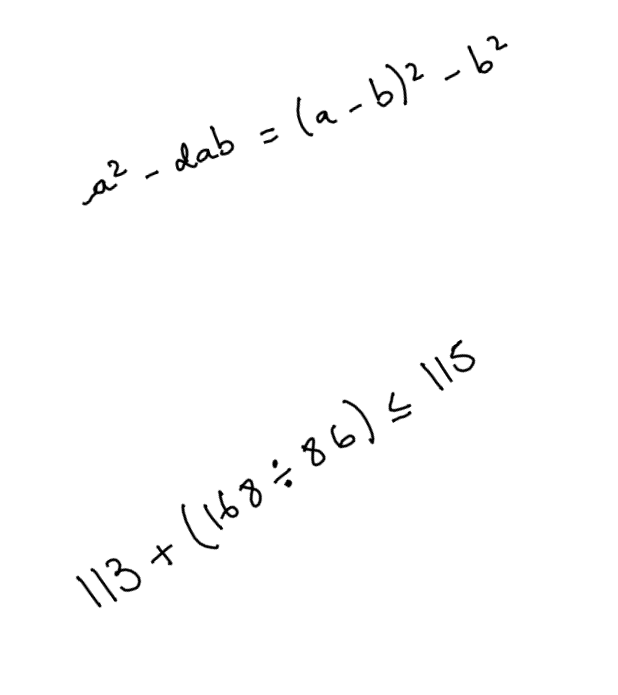 a² - 2ab = (a - b)² - b²
113 + (168 ÷ 86) ≤ 115